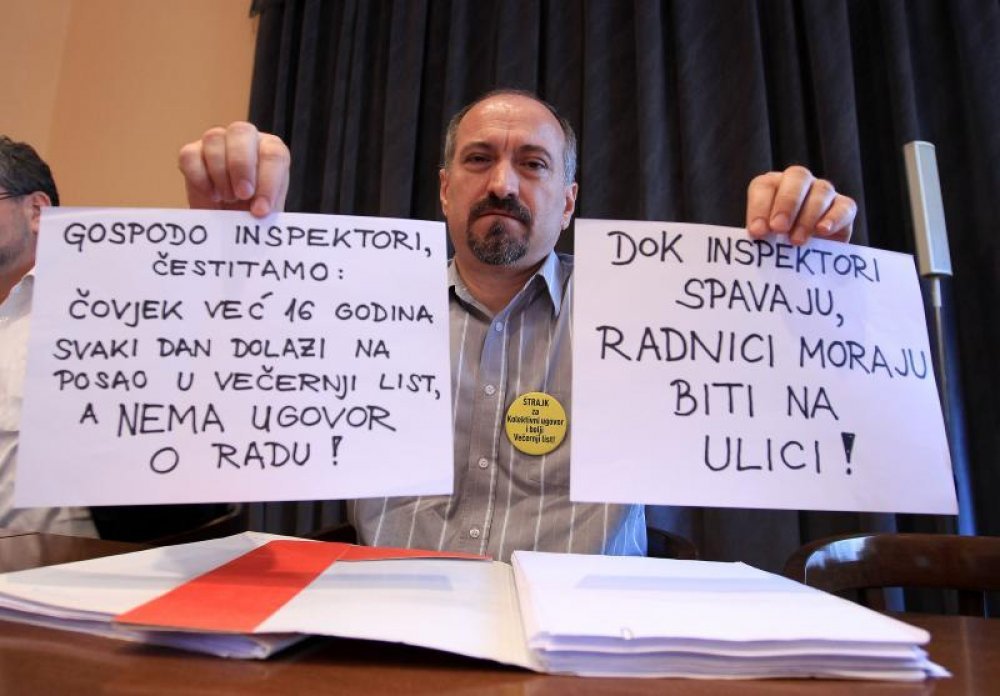 GOSPODO INSPEKTORI,
ČESTITAMO:
ČOVJEK VEĆ 16 GODINA
SVAKI DAN DOLAZI NA
POSAO U VEČERNJI LIST,
A NEMA UGOVOR
O RADU!
DOK INSPEKTORI
SPAVAJU,
RADNICI MORAJU
BITI NA
ULICI!
ŠTRAJK
za
Kolektivni ugovor
i bolji
Večernji list!